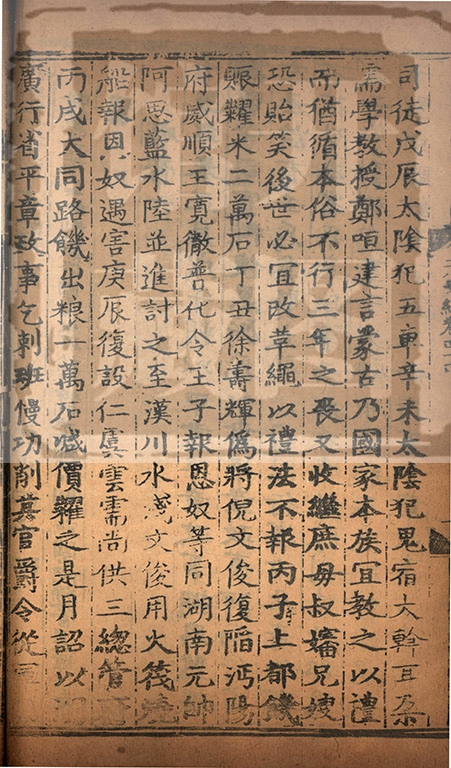 司徒戊辰太陰犯五車辛未太陰犯鬼宿大斡耳朶
儒學教授鄭咺建言蒙古乃國家本族宜教之以禮
而猶循本俗不行三年之喪又收繼庶母叔嬸兄嫂
恐貽笑後世必宜改革繩以禮法不報丙子上都饑
賑糶米二萬石丁丑徐壽輝偽將倪文俊復陷沔陽
府威順王寛徹普化令王子報恩奴等同湖南元帥
阿思藍水陸並進討之至漢川水淺文俊用火筏燒
船報恩奴遇害庚辰復設仁虞雲需尚供三總管
丙戌大同路饑出粮一萬石减價糶之是月詔以湖
廣行省平章政事乞剌班慢功削其官爵令從